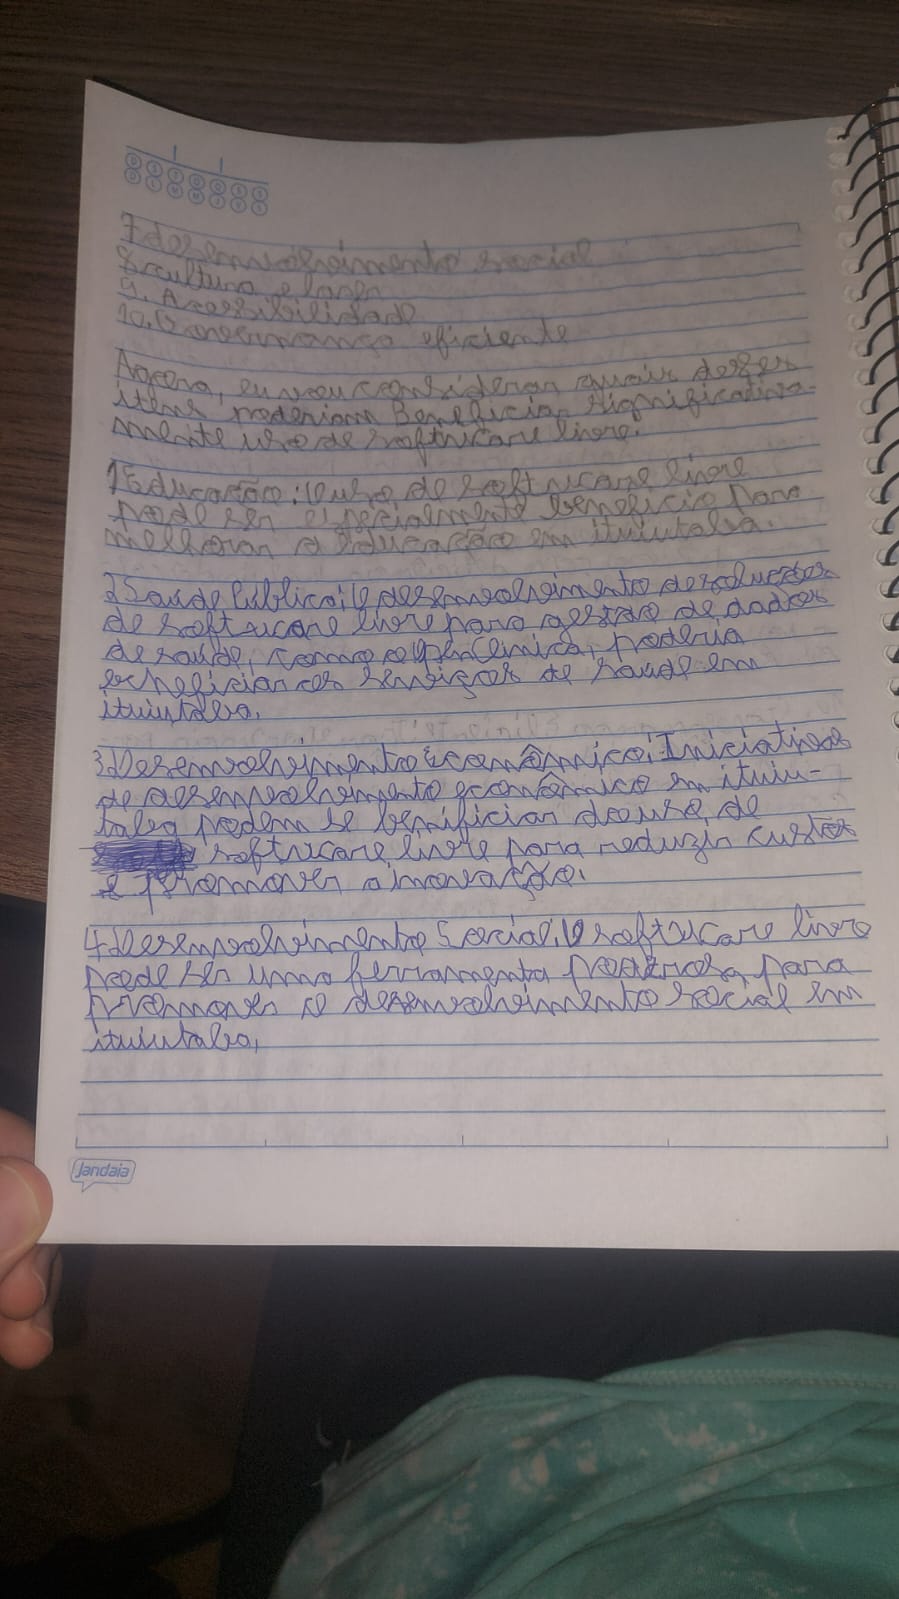 D S T Q Q S S
D L M M J V S
7 desenvolvimento social
8. cultura e lazer
9. Acessibilidade
10. Governança eficiente
Agora, eu vou considerar quais desses
itens poderiam Beneficiar significativa-
mente uso de software livre.
1 Educação: O uso de software livre
pode ser especialmente beneficio para
melhorar a Educação em ituiutaba.
2 Saúde Pública: O desenvolvimento de soluções
de software livre para gestão de dados
de saúde, como o OpenClinica, poderia
beneficiar os serviços de saúde em
ituiutaba.
3 Desenvolvimento Econômico: Iniciativas
de desenvolvimento econômico em ituiu-
taba podem se benificiar do uso de
software livre para reduzir custos
e promover a inovação.
4 Desenvolvimento Social: O software livre
pode ser uma ferramenta poderosa para
promover o desenvolvimento social em
ituiutaba.
Jandaia